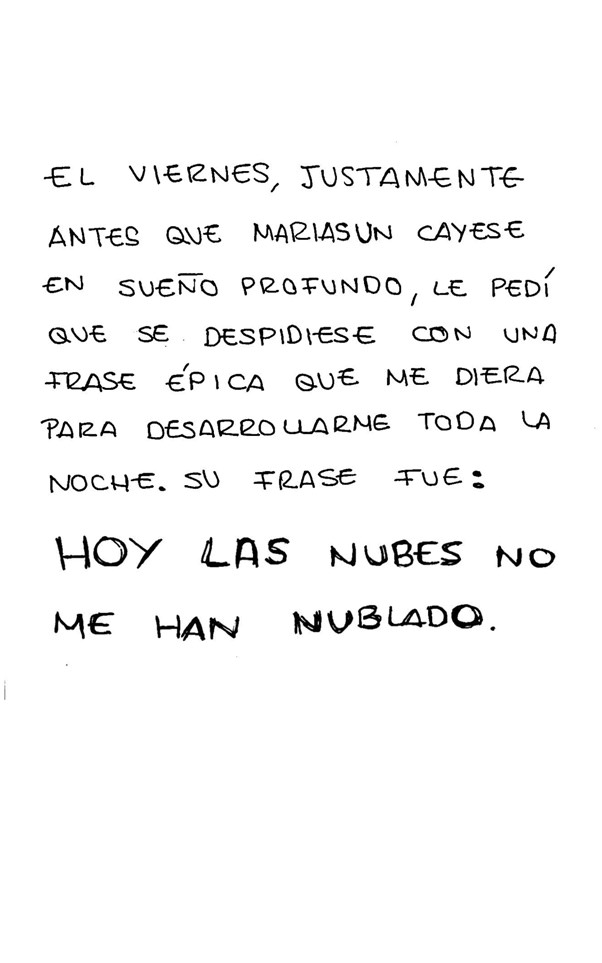 EL VIERNES, JUSTAMENTE
ANTES QUE MARIASUN CAYESE
EN SUEÑO PROFUNDO, LE PEDÍ
QUE SE DESPIDIESE CON UNA
FRASE ÉPICA QUE ME DIERA
PARA DESARROLLARME TODA LA
NOCHE. SU FRASE FUE:
HOY LAS NUBES NO
ME HAN NUBLADO.